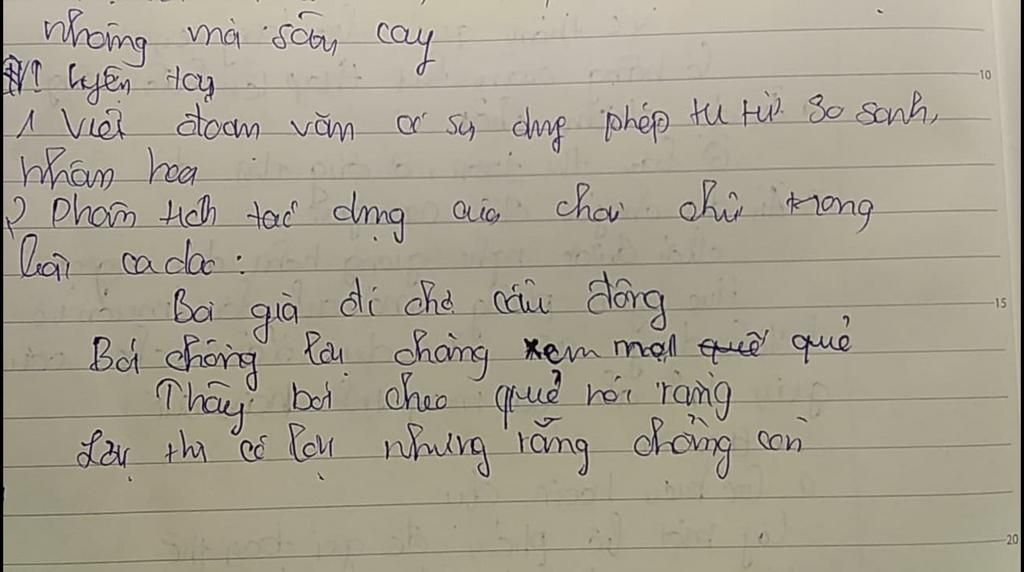 nhưng mà sâu cay
VI luyện tập
1 Viết đoạn văn có sử dụng phép tu từ so sanh,
nhân hoa
2 Phân tích tác dụng của chơi chữ trong
bài ca dao:
Bà già đi chợ cầu đông
Bói chồng lợi chăng xem một quẻ
Thầy bói gieo quẻ nói rằng
Lợi thì có lợi nhưng răng chẳng còn
10
15
20